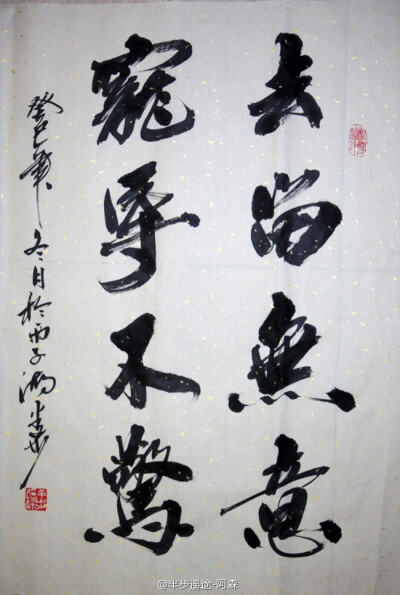 去留無意
寵辱不驚
癸巳年冬月於西子湖
@半步遥途-阿森